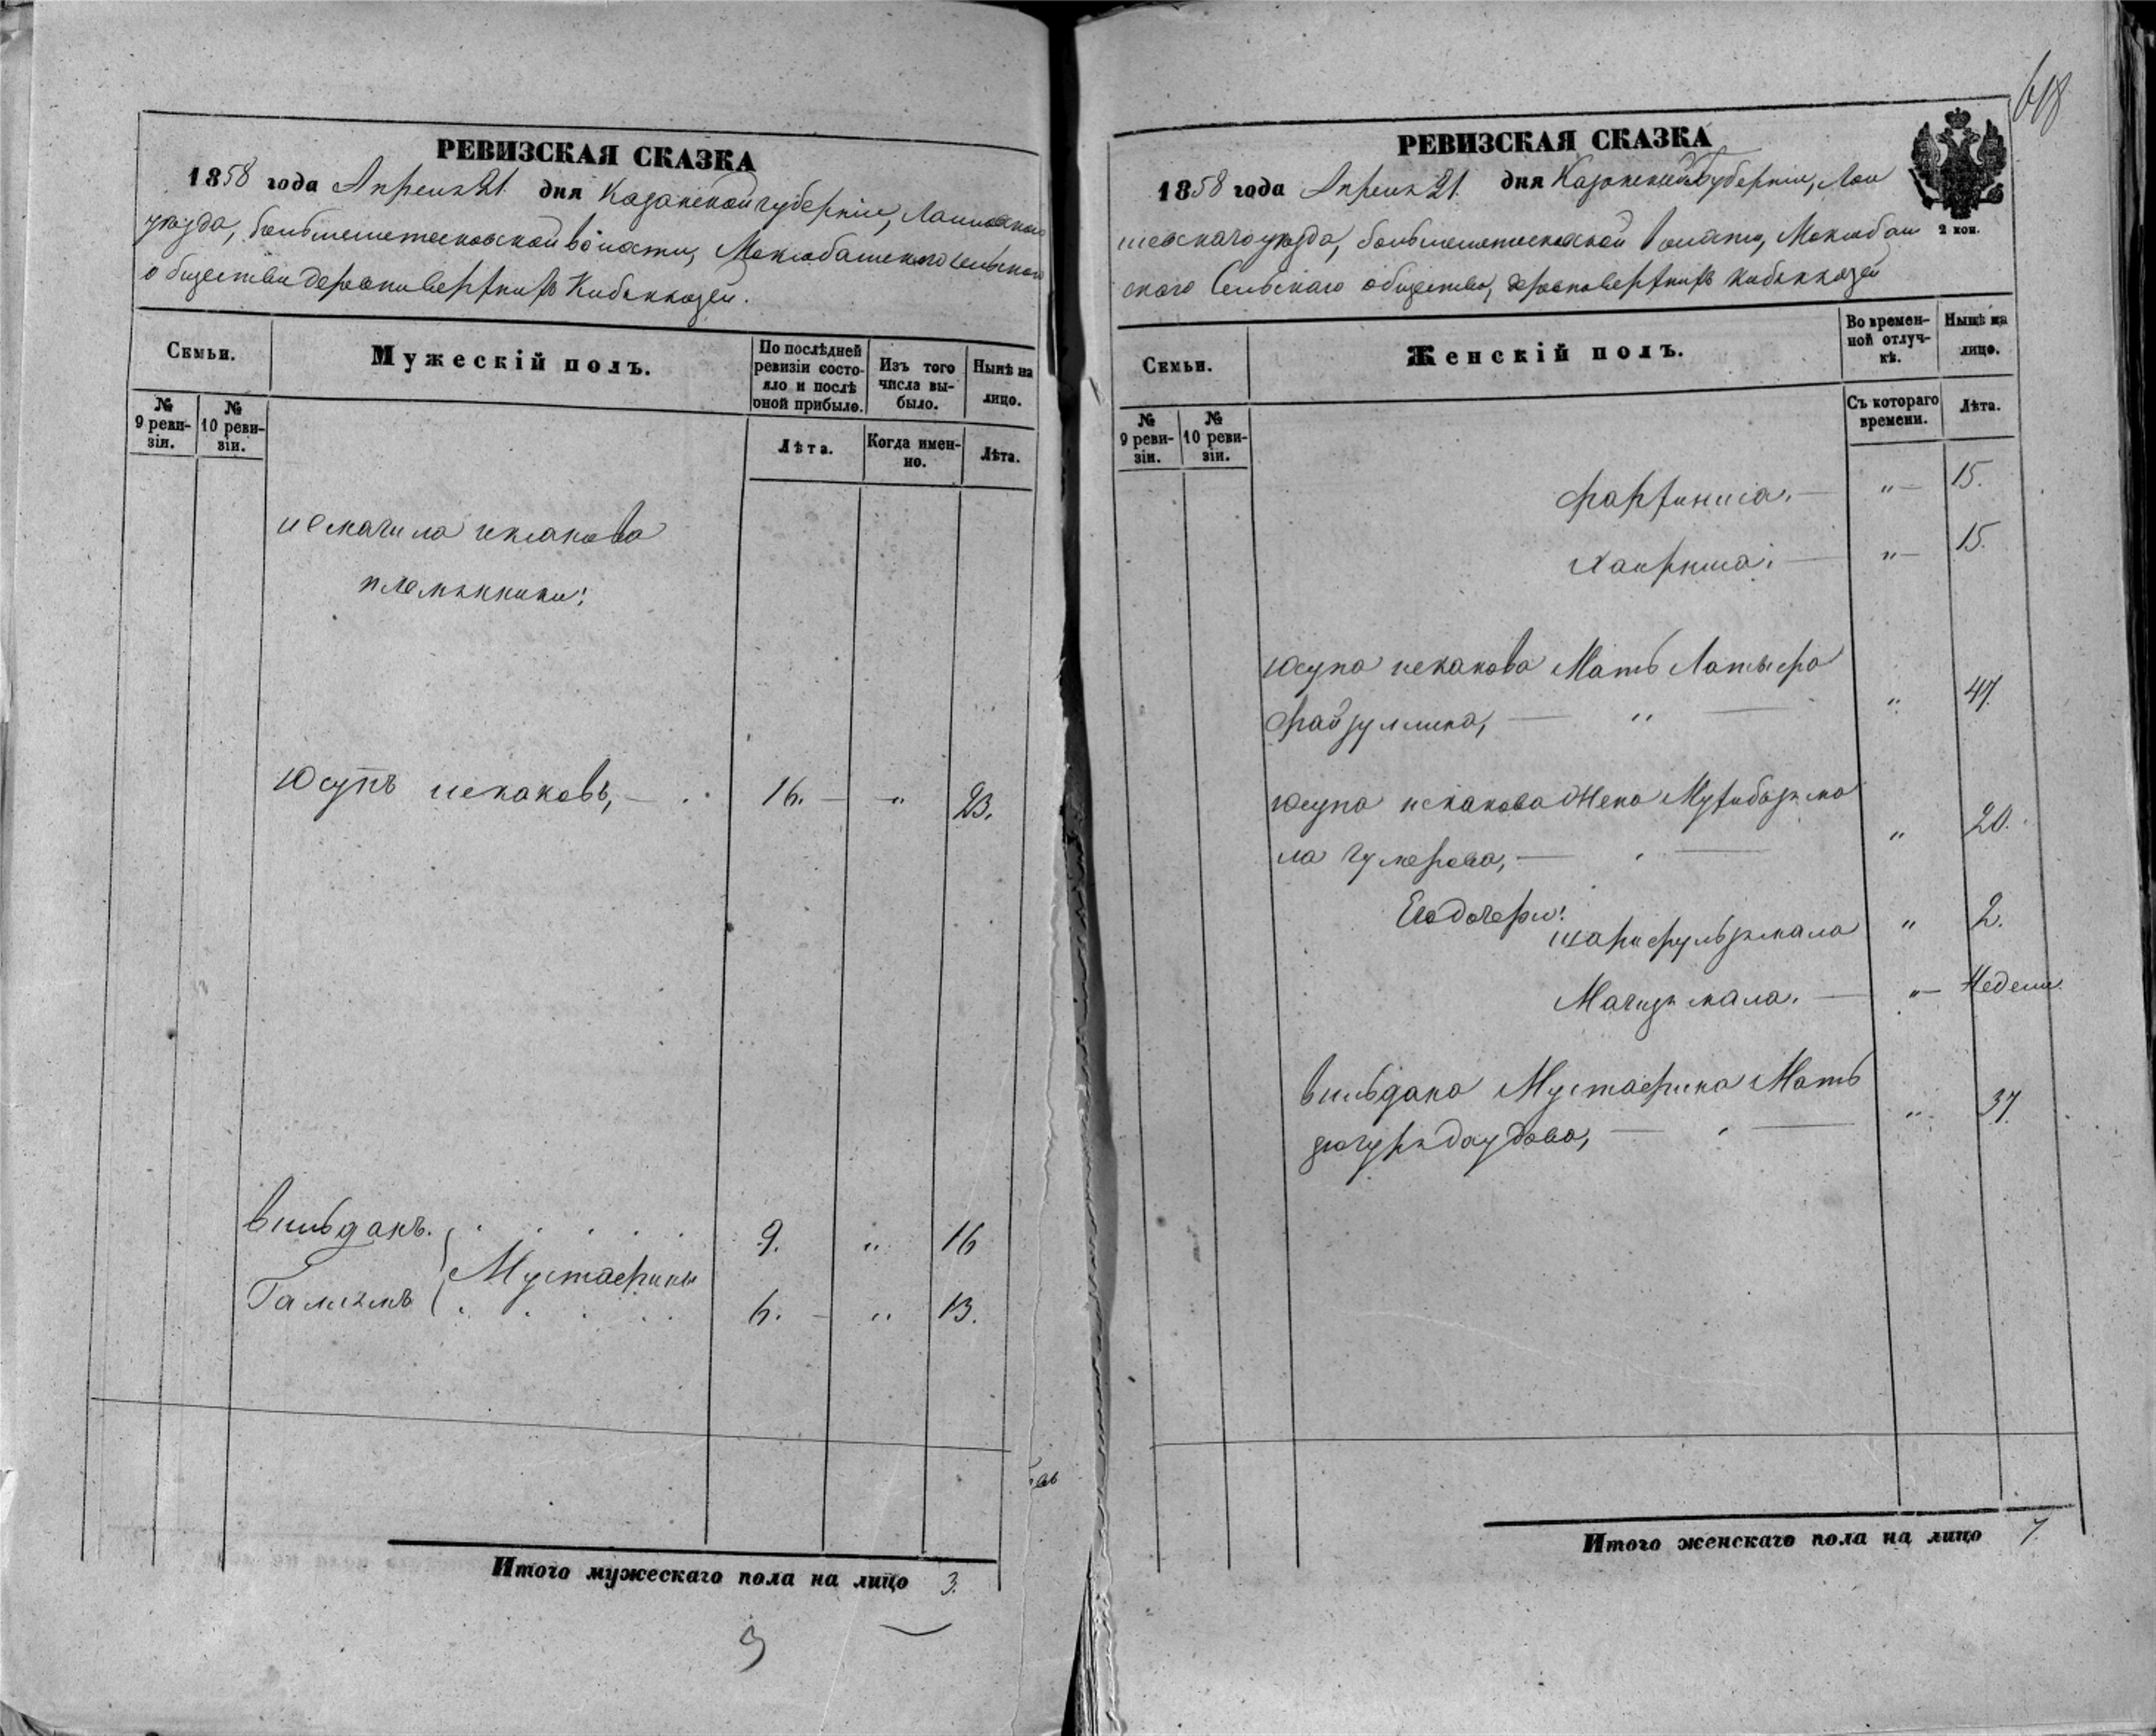 РЕВИЗСКАЯ СКАЗКА
1858 года Апреля 21. дня Казанской губернии, Лаишевского
уезда, большеметесковской волости, Маклобашского сельскаго
общества деревни верхних Кибякозей.
Семьи.
Мужескій полъ.
По послѣдней ревизіи состояло и послѣ оной прибыло.
Изъ того числа выбыло.
Нынѣ на лицо.
№ 9 ревизіи.
№ 10 ревизіи.
Лѣта.
Когда именно.
Лѣта.
исмагила искакова
племянники:
Юсупъ искаковъ, 16. " 23.
Вильданъ. 9. " 16
Мустафины
Галимъ 6. " 13.
Итого мужескаго пола на лицо 3.
3
618
РЕВИЗСКАЯ СКАЗКА
1858 года Апреля 21. дня Казанской губернии, Лаи
шевскаго уезда, большеметесковской волости, Маклобаш
2 коп.
скаго Сельскаго общества, деревни верхних Кибякозей
Семьи.
Женскій полъ.
Во временной отлучкѣ.
Нынѣ на лицо.
№ 9 ревизіи.
№ 10 ревизіи.
Съ котораго времени.
Лѣта.
" 15.
" 15.
Юсупа искакова Мать Латыфа
файзуллина, " " 47.
Юсупа искакова Жена Мугибызма
ла Гумерова, " 20.
Его дочери:
шарифульзямала " 2.
Магизямала. " Недели.
Вильдана Мустафина Мать
даудова, " 37.
Итого женскаго пола на лицо 7.